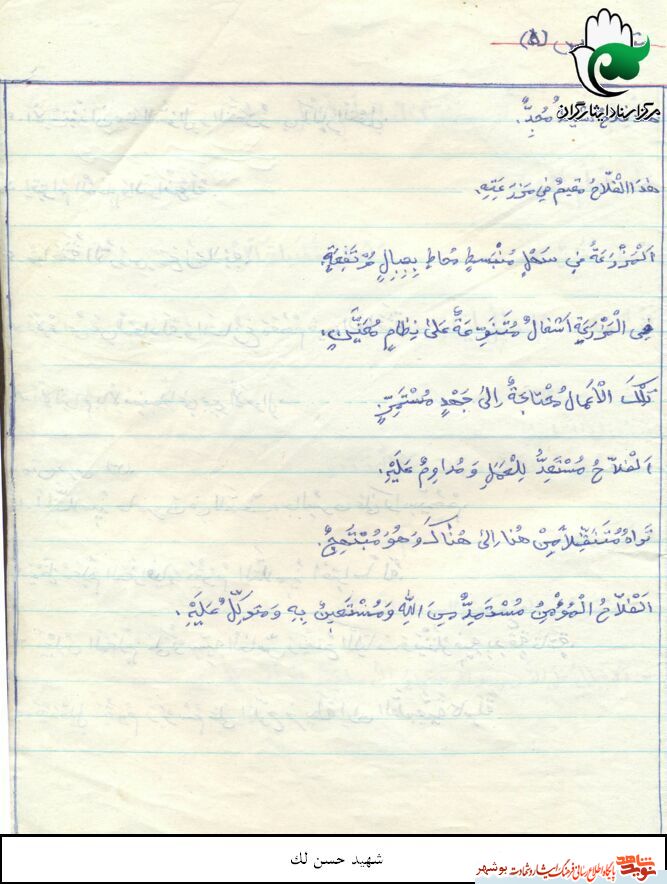 (٨)
مرکز اسناد ایثارگران
مُجِدٌّ.
هذَا الْفَلّاحُ مُقيمٌ في مَزْرَعَتِهِ.
اَلْمَزْرَعَةُ في سَهْلٍ مُنْبَسِطٍ مُحاطٍ بِجِبالٍ مُرْتَفِعَةٍ.
فِي الْمَزْرَعَةِ اَشْغالٌ مُتَنَوِّعَةٌ عَلىٰ نِظامٍ مُعَيَّنٍ.
تِلْكَ الْأَعْمالُ مُحْتاجَةٌ اِلىٰ جَهْدٍ مُسْتَمِرٍّ.
اَلْفَلّاحُ مُسْتَعِدٌّ لِلْعَمَلِ وَ مُداوِمٌ عَلَيْهِ.
تَراهُ مُتَنَقِّلاً مِنْ هُنا اِلىٰ هُناكَ وَ هُوَ مُبْتَهِجٌ.
اَلْفَلّاحُ الْمُؤْمِنُ مُسْتَمِدٌّ مِنَ اللهِ وَ مُسْتَعينٌ بِهِ وَ مُتَوَكِّلٌ عَلَيْهِ.
شهید حسن لك
نوید شاهد
پایگاه اطلاع رسانی فرهنگ ایثار و شهادت بوشهر